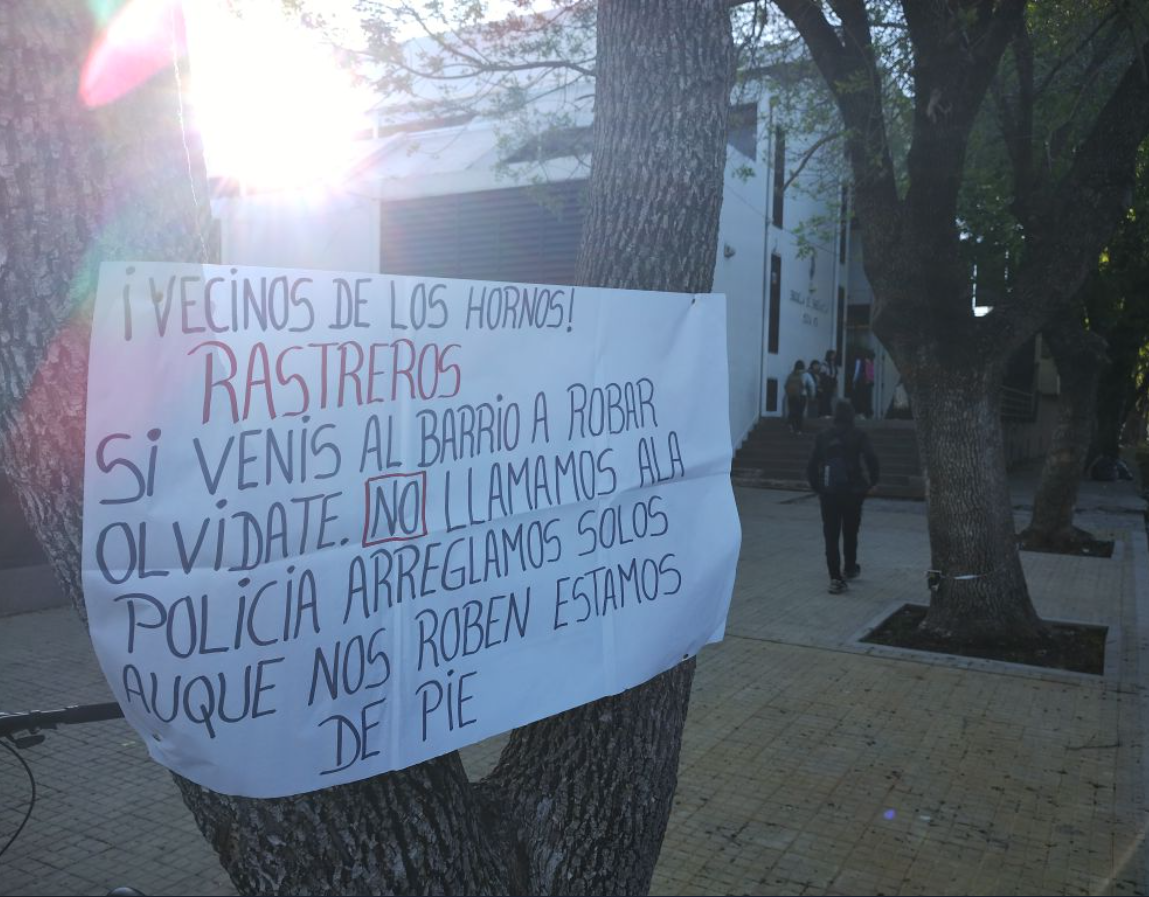 ¡VECINOS DE LOS HORNOS!
RASTREROS
SI VENIS AL BARRIO A ROBAR
OLVIDATE. NO LLAMAMOS ALA
POLICIA ARREGLAMOS SOLOS
AUQUE NOS ROBEN ESTAMOS
DE PIE